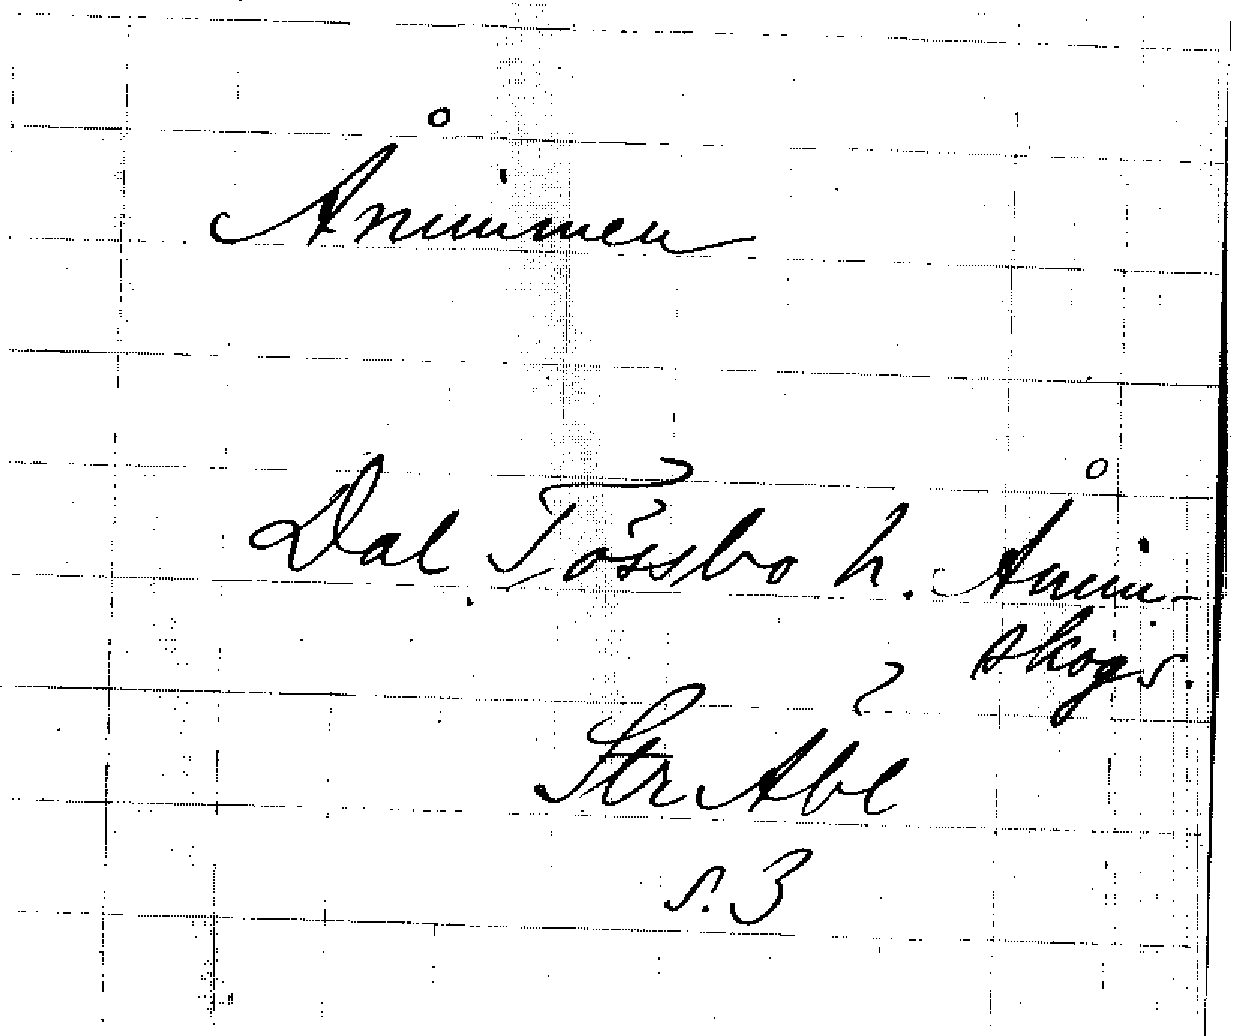 Ånimmen
Dal, Tössbo h. Ånim-
skogs.
Str Åbl
s. 3